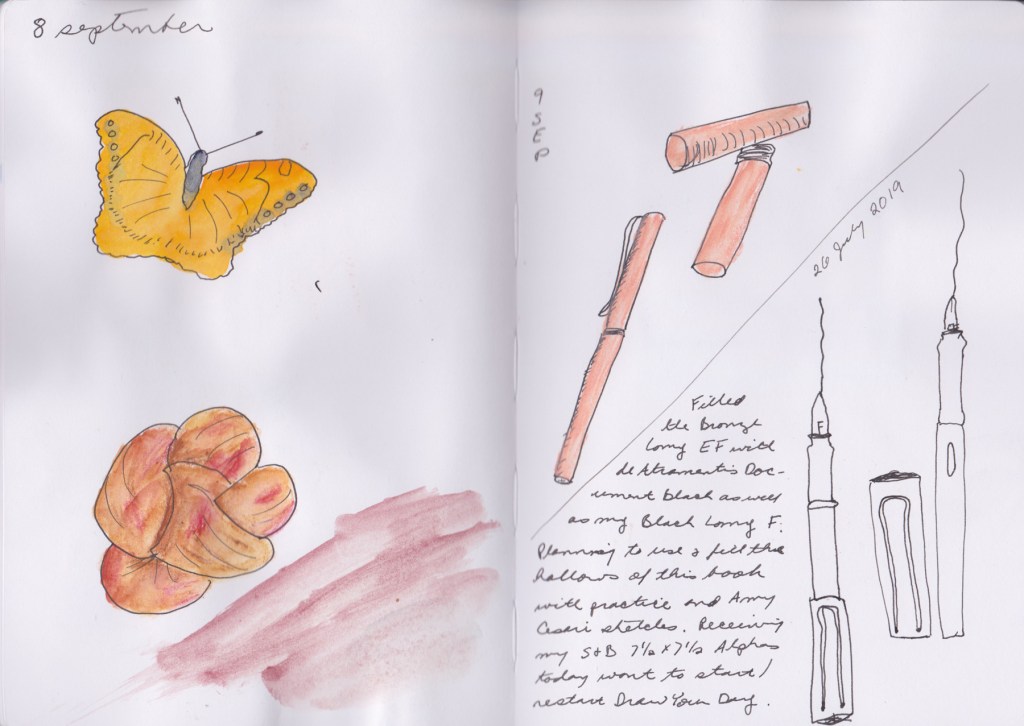 8 september
9
S
E
P
26 July 2019
Filled
the Bronze
Lamy EF with
de Atramentis Doc-
ument black as well
as my Black Lamy F.
Planning to use & fill the
hallows of this book
with practice and Amy
Cesari sketches. Receiving
my S&B 7½ x 7½ Alpha
today want to start/
restart Draw Your Day.
F